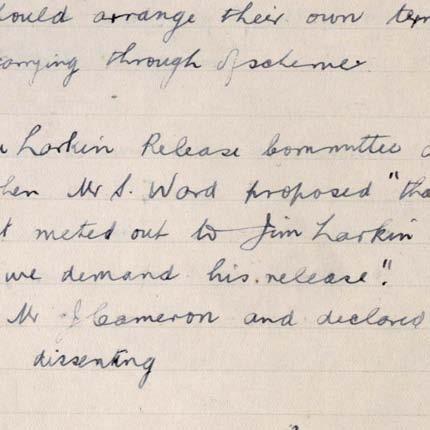 should arrange their own term
carrying through of scheme
Larkin Release Committee
when Mr S. Ward proposed "tha
t meted out to Jim Larkin
we demand his release".
Mr J Cameron and declared
dissenting